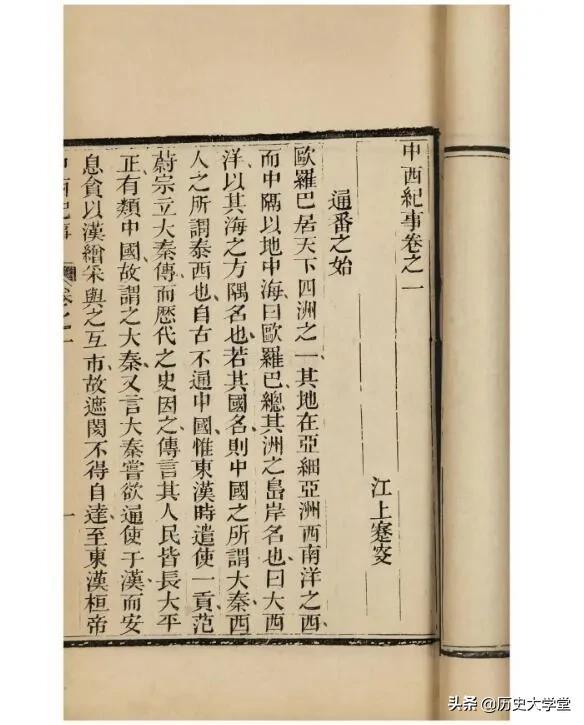 中西紀事卷之一
江上蹇叜
通番之始
歐羅巴居天下四洲之一其地在亞細亞洲西南洋之西
而中隔以地中海曰歐羅巴總其洲之島岸名也曰大西
洋以其海之方隅名也若其國名則中國之所謂大秦西
人之所謂泰西也自古不通中國惟東漢時遣使一貢范
蔚宗立大秦傳而歷代之史因之傳言其人民皆長大平
正有類中國故謂之大秦又言大秦嘗欲通使于漢而安
息貪以漢繒采與之互市故遮閡不得自達至東漢桓帝
中西紀事 卷之一 一
头条 @历史大学堂